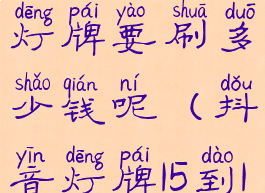 dēng pái yào shuā duō
灯牌要刷多
shǎo qián ní dǒu
少钱呢(抖
yīn dēng pái dào
音灯牌15到1